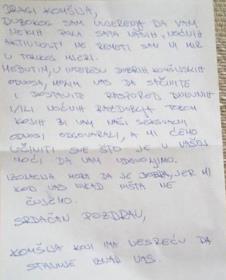 DRAGI KOMŠIJA,
DUBOKO SAM UVERENA DA VAM
NEKIH PAR SATI VAŠIH NOĆNIH
AKTIVNOSTI NE REMETI SAN NI MIR
U TOLIKOJ MERI.
MEĐUTIM, U INTERESU DOBRIH KOMŠIJSKIH
ODNOSA, MOLIM VAS DA SAČINITE
I DOSTAVITE RASPORED DNEVNIH
ILI NOĆNIH RAZDOBLJA TOKOM
KOJIH BI VAM NAŠI SEKSUALNI
ODNOSI ODGOVARALI, A MI ĆEMO
UČINITI SVE ŠTO JE U NAŠOJ
MOĆI DA VAM UDOVOLJIMO.
IZOLACIJA MORA DA JE DOBRA, JER MI
KOD VAS NIKAD NIŠTA NE
ČUJEMO.
SRDAČAN POZDRAV,
KOMŠIJA KOJI IMA NESREĆU DA
STANUJE IZNAD VAS.